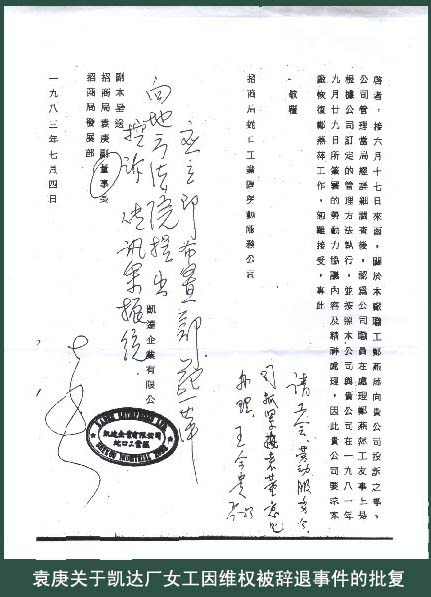 啓者,接六月十七日來函,關於本廠職工鄭燕萍向貴公司投訴之事,
公司管理當局經詳細調查後,認爲公司職員在處理鄭燕萍工友事上是
根據公司訂定的管理方法執行,並按照本公司與貴公司在一九八一年
九月廿九日所簽署的勞動力協議內容及精神處理,因此貴公司要求本
廠恢復鄭燕萍工作,礙難接受,專此
敬覆
招商局蛇口工業區勞動服務公司
凱達企業有限公
副本呈送
招商局袁庚副董事長
招商局發展部
一九八三年七月四日
应立即布置郑
向地方法院提出
控诉
请工会、劳动服务公
司抓紧按袁董意见
办理。王今贵
凱達企業有限公司
蛇口工業區
袁庚关于凯达厂女工因维权被辞退事件的批复